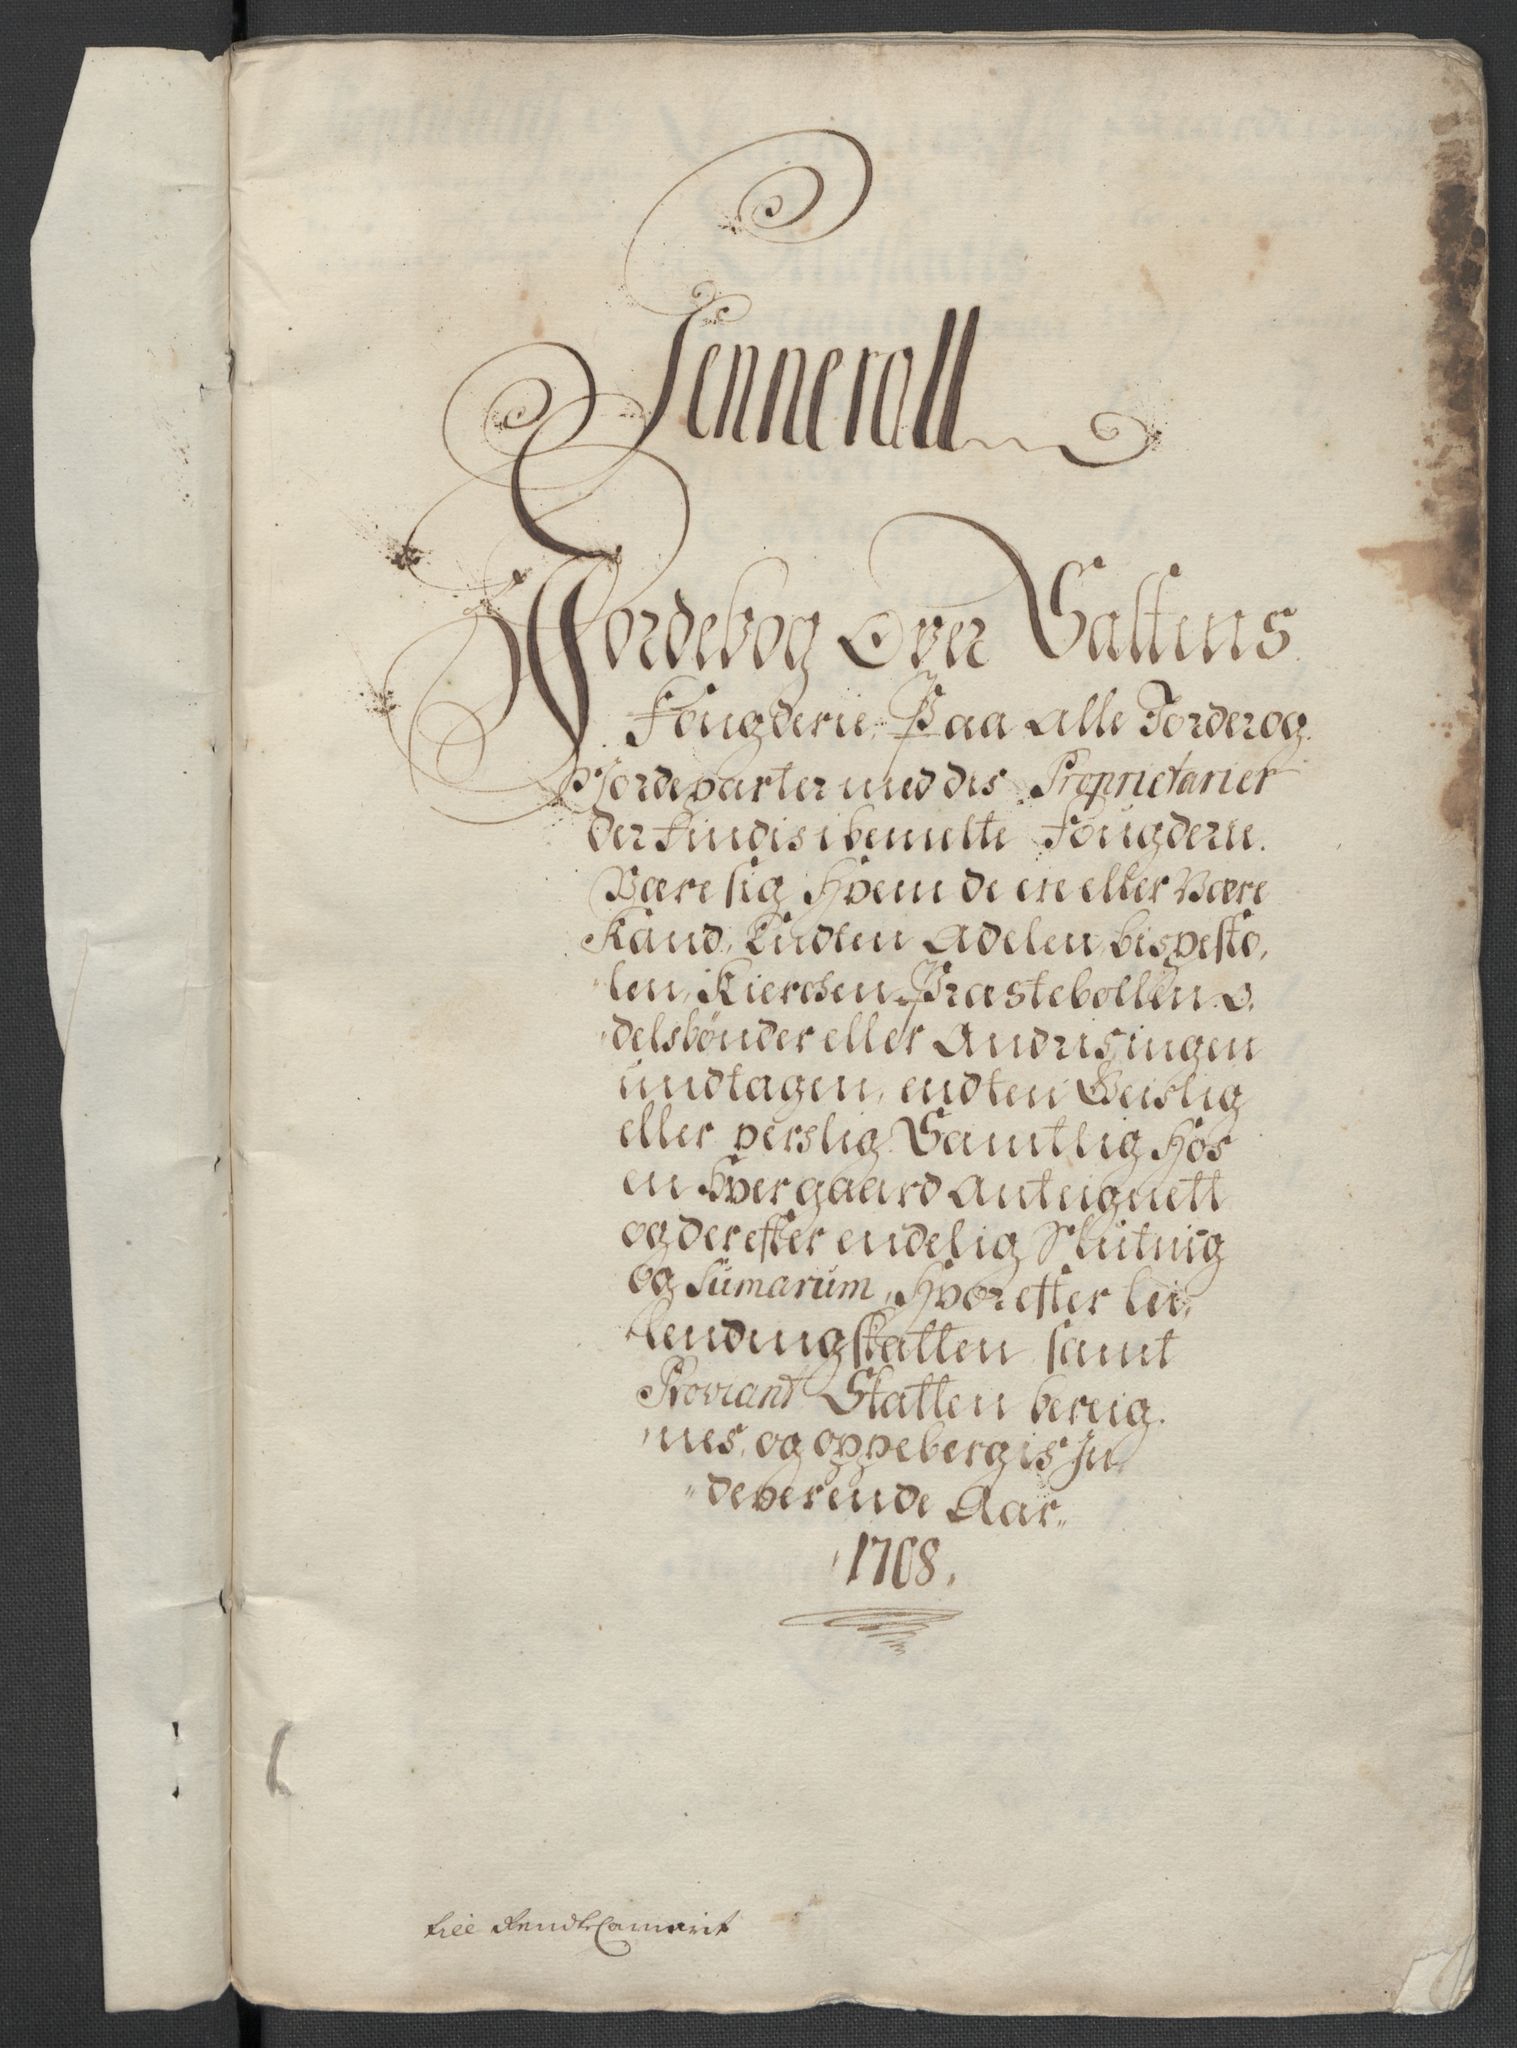 Jennerall
Jordebog Over Saltens
Fougderie, Paa alle Jorder og
Jordeparter med dis Proprietarier
der findis i bemelte Fougderie.
Være sig Hvem de ere eller være
Kand, Endten Adelen, bispesto,
len, Kierchen, Præstebollen, O,
delsbønder eller Andris ingen
undtagen, endten Geislig
eller verslig. Samtlig Hos
en Hver gaard Anteignett
og derefter endelig Slutnig
og Sumarum, Hvorefter lei,
lendingskatten samt
Proviant Skatten bereig.
nes, og oppebergis In
deverende Aar.
1708.
till RendteCamerit